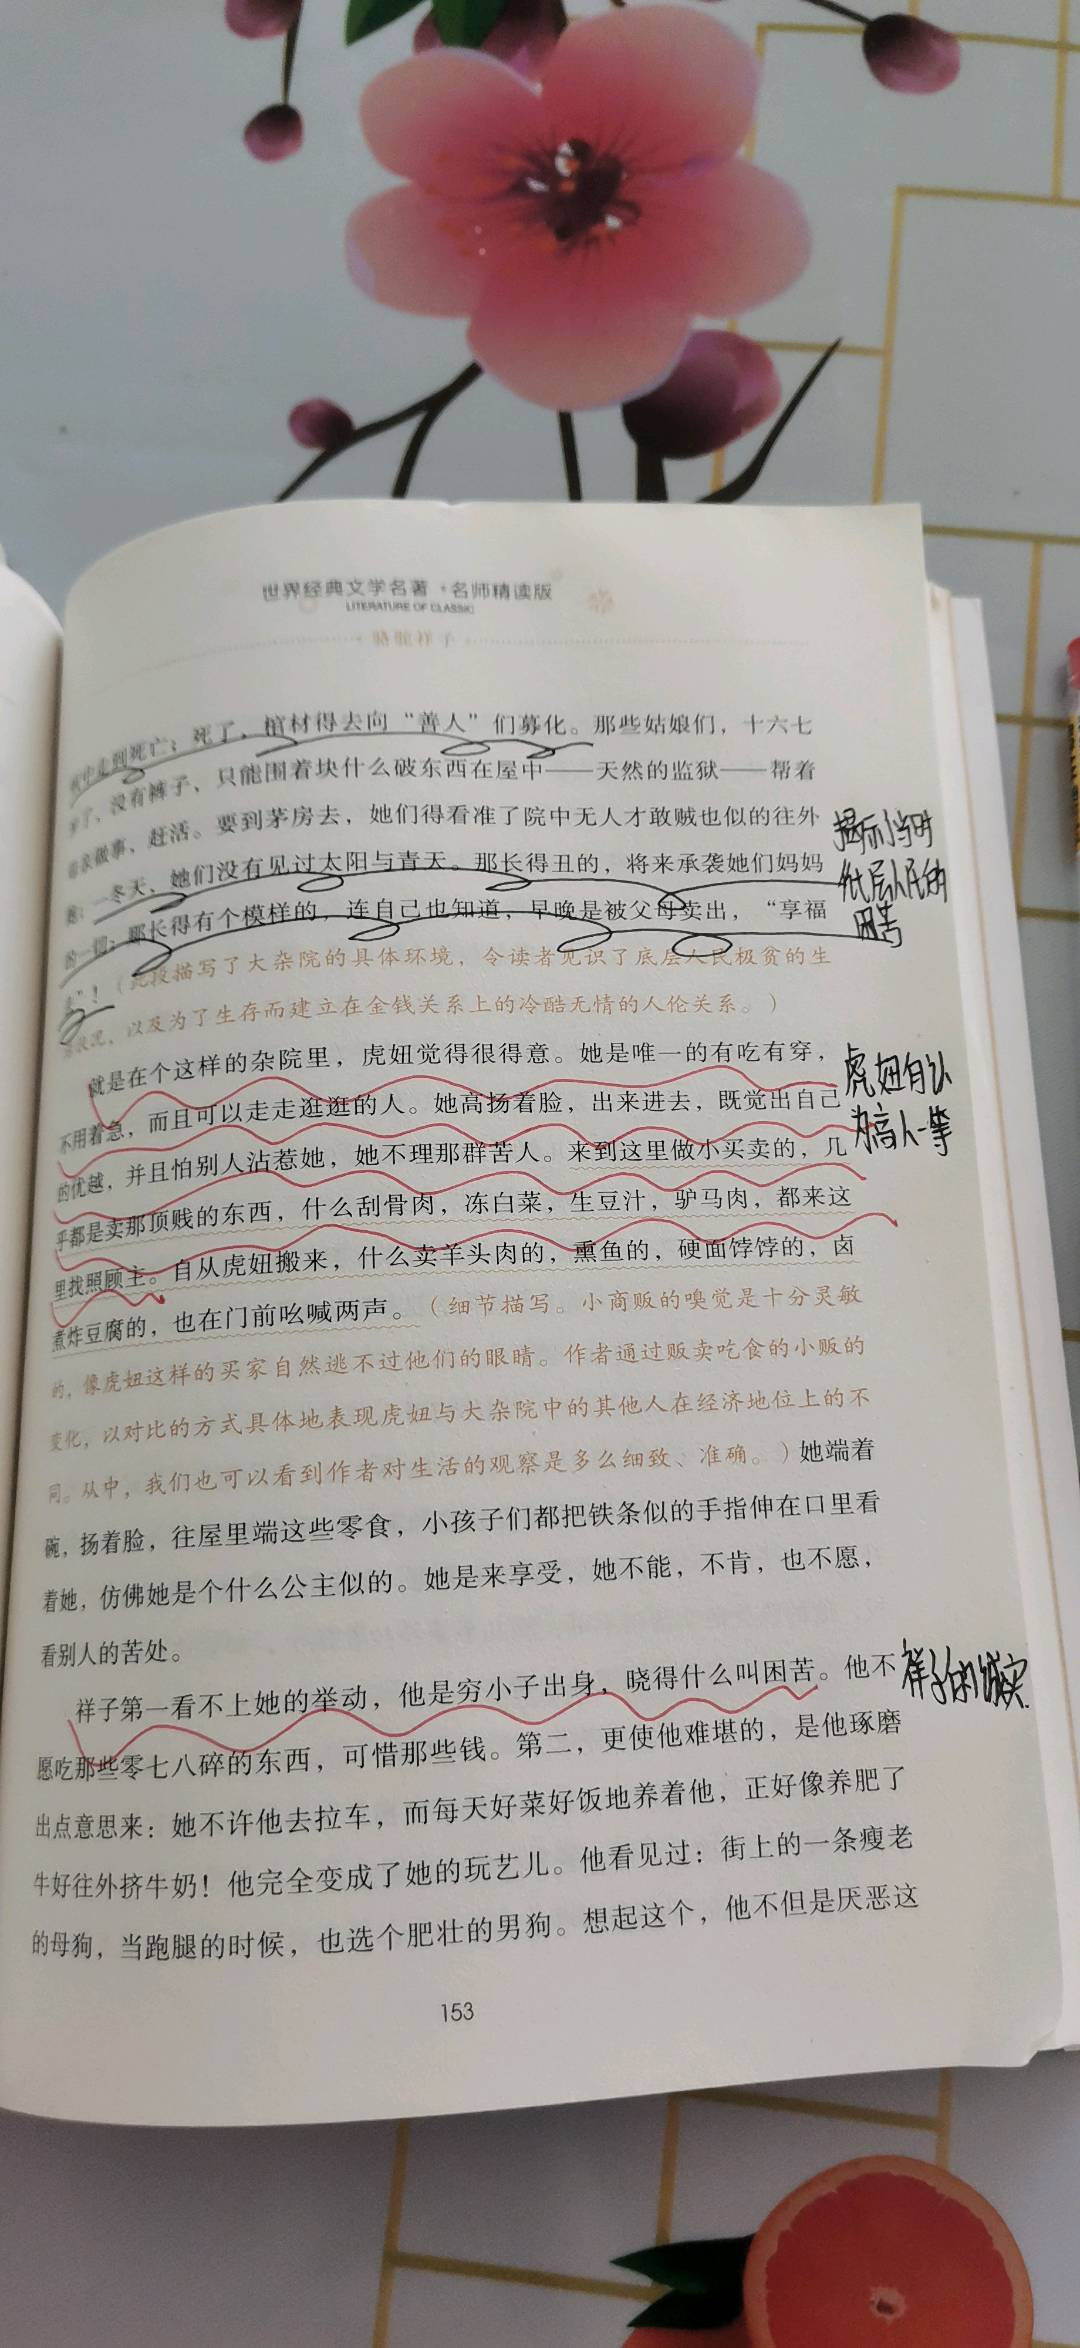 世界经典文学名著·名师精读版
LITERATURE OF CLASSIC
骆驼祥子
走到死亡；死了，棺材得去向“善人”们募化。那些姑娘们，十六七
了，没有裤子，只能围着块什么破东西在屋中——天然的监狱——帮着
做事，赶活。要到茅房去，她们得看准了院中无人才敢贼也似的往外
一冬天，她们没有见过太阳与青天。那长得丑的，将来承袭她们妈妈
的一切；那长得有个模样的，连自己也知道，早晚是被父母卖出，“享福
”！（此段描写了大杂院的具体环境，令读者见识了底层人民极贫的生
状况，以及为了生存而建立在金钱关系上的冷酷无情的人伦关系。）
就是在个这样的杂院里，虎妞觉得很得意。她是唯一的有吃有穿，
不用着急，而且可以走走逛逛的人。她高扬着脸，出来进去，既觉出自己
的优越，并且怕别人沾惹她，她不理那群苦人。来到这里做小买卖的，几
乎都是卖那顶贱的东西，什么刮骨肉，冻白菜，生豆汁，驴马肉，都来这
里找照顾主。自从虎妞搬来，什么卖羊头肉的，熏鱼的，硬面饽饽的，卤
煮炸豆腐的，也在门前吆喊两声。（细节描写。小商贩的嗅觉是十分灵敏
的，像虎妞这样的买家自然逃不过他们的眼睛。作者通过贩卖吃食的小贩的
变化，以对比的方式具体地表现虎妞与大杂院中的其他人在经济地位上的不
同。从中，我们也可以看到作者对生活的观察是多么细致、准确。）她端着
碗，扬着脸，往屋里端这些零食，小孩子们都把铁条似的手指伸在口里看
着她，仿佛她是个什么公主似的。她是来享受，她不能，不肯，也不愿，
看别人的苦处。
祥子第一看不上她的举动，他是穷小子出身，晓得什么叫困苦。他不
愿吃那些零七八碎的东西，可惜那些钱。第二，更使他难堪的，是他琢磨
出点意思来：她不许他去拉车，而每天好菜好饭地养着他，正好像养肥了
牛好往外挤牛奶！他完全变成了她的玩艺儿。他看见过：街上的一条瘦老
的母狗，当跑腿的时候，也选个肥壮的男狗。想起这个，他不但是厌恶这
153
揭示当时
低层人民的
困苦
虎妞自认
为高人一等
祥子的诚实